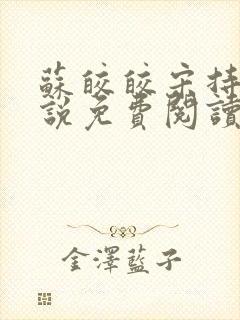 蘇皎皎宋持
說免費閱讀
金澤藍子